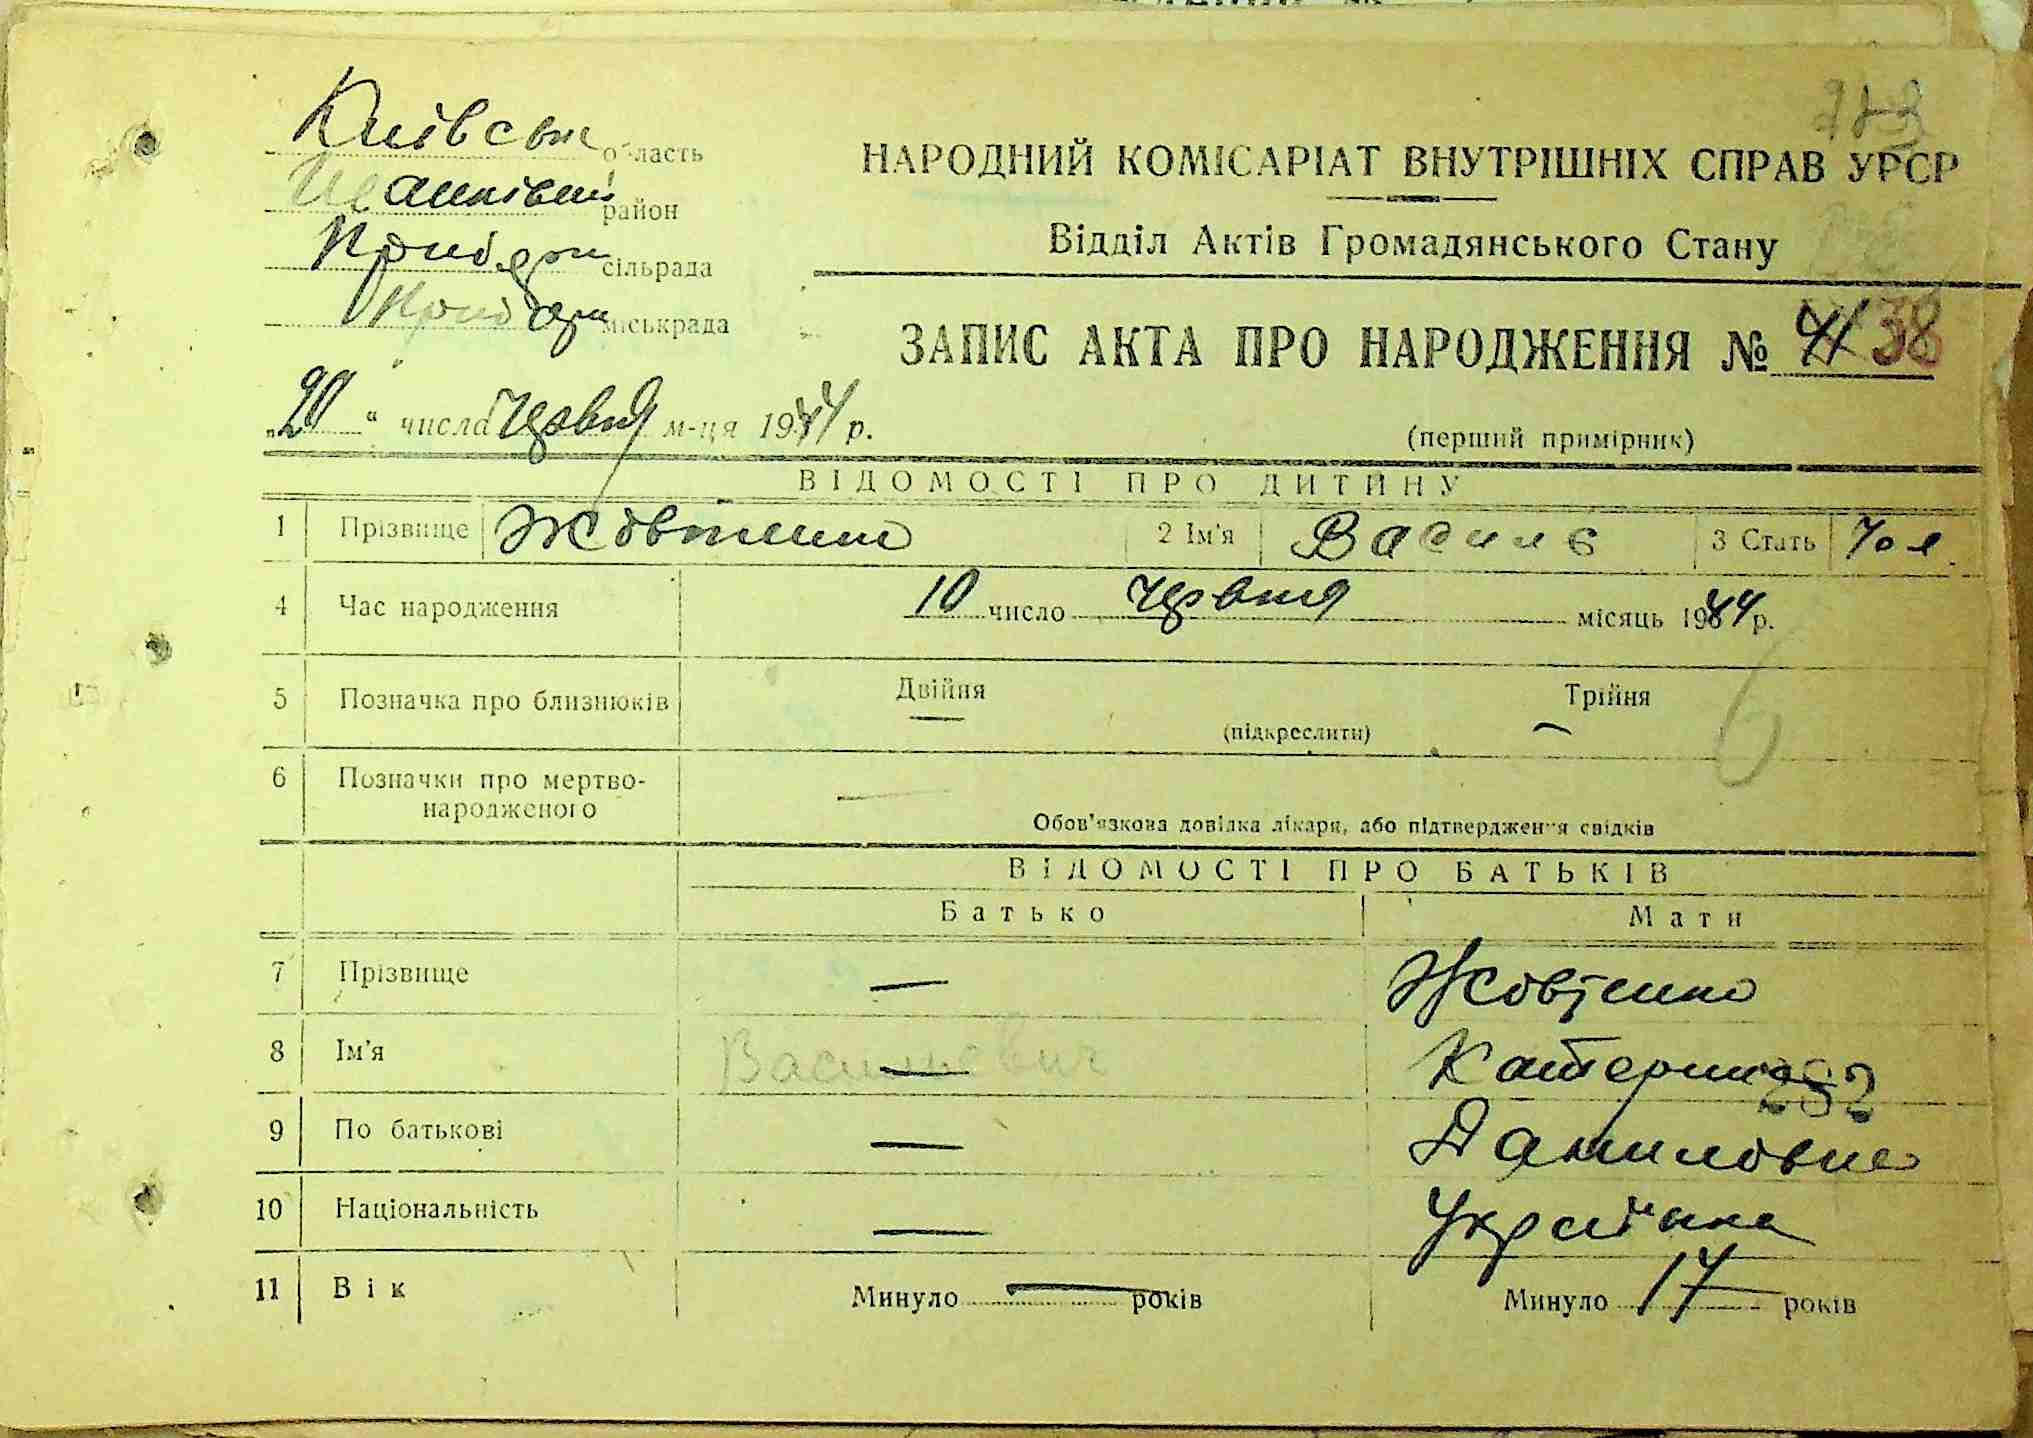 Київська область
район
сільрада
міськрада
НАРОДНИЙ КОМІСАРІАТ ВНУТРІШНІХ СПРАВ УРСР
Відділ Актів Громадянського Стану
ЗАПИС АКТА ПРО НАРОДЖЕННЯ № 41 38
„20“ числа Червня м-ця 1944 р.
(перший примірник)
ВІДОМОСТІ ПРО ДИТИНУ
1 Прізвище Жовтенко 2 Ім'я Василь 3 Стать Чол.
4 Час народження 10 число Червня місяць 1944 р.
5 Позначка про близнюків Двійня — Трійня —
(підкреслити)
6 Позначки про мертво-
народженого —
Обов'язкова довідка лікаря, або підтвердження свідків
ВІДОМОСТІ ПРО БАТЬКІВ
Батько Мати
7 Прізвище — Жовтенко
8 Ім'я Васильович — Катерина 282
9 По батькові — Даниловна
10 Національність — Українка
11 Вік Минуло — років Минуло 17 років